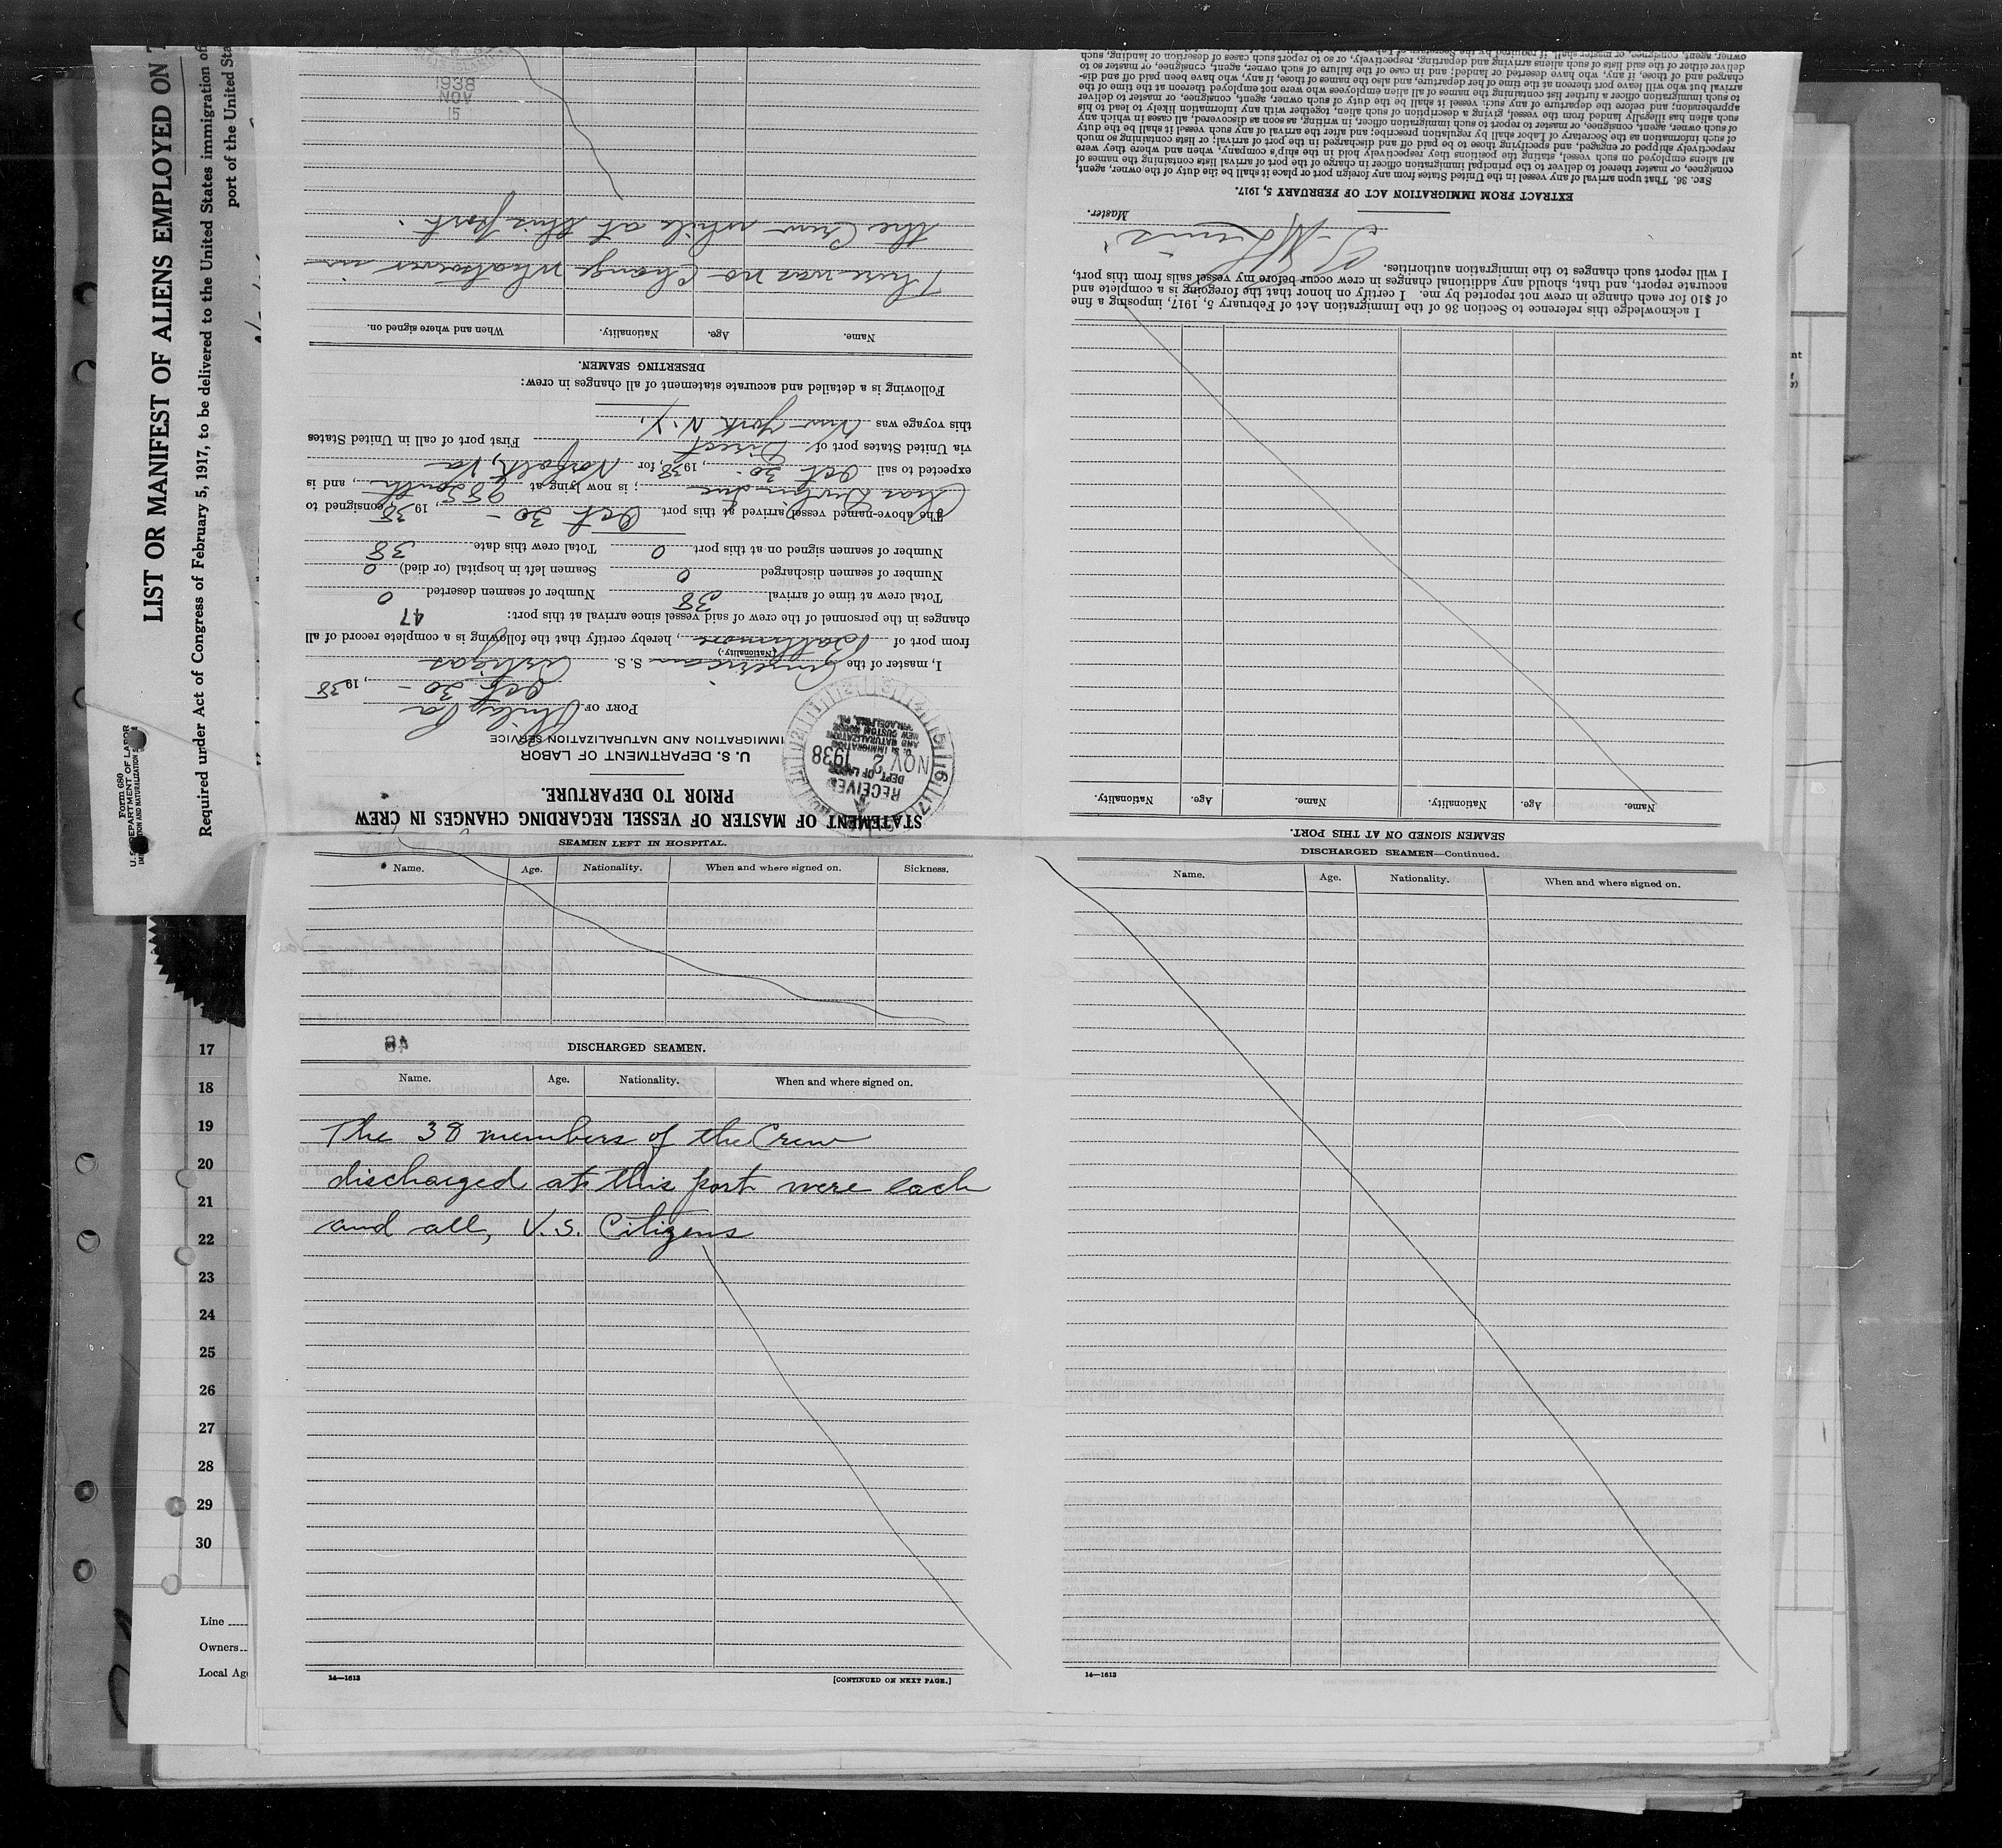 LIST OR MANIFEST OF ALIENS EMPLOYED ON
Required under Act of Congress of February 5, 1917, to be delivered to the United States immigration of
port of the United Sta
Form 680
U. S. DEPARTMENT OF LABOR
IMMIGRATION AND NATURALIZATION
STATEMENT OF MASTER OF VESSEL REGARDING CHANGES IN CREW
PRIOR TO DEPARTURE.
U. S. DEPARTMENT OF LABOR
IMMIGRATION AND NATURALIZATION SERVICE
RECEIVED
DEPT. OF LABOR
NOV 2 1938
U. S. IMMIGRATION
AND NATURALIZATION
NEW CUSTOM HOUSE
PHILADELPHIA, PA.
PORT OF Phila, Pa
Oct. 30 -, 1938
I, master of the American S. S. Artigas
(Nationality.)
from port of Baltimore, hereby certify that the following is a complete record of all
changes in the personnel of the crew of said vessel since arrival at this port:
47
Total crew at time of arrival 38 Number of seamen deserted 0
Number of seamen discharged 0 Seamen left in hospital (or died) 0
Number of seamen signed on at this port 0 Total crew this date 38
The above-named vessel arrived at this port Oct 30 -, 1938 consigned to
Chas ; is now lying at 98 South, and is
expected to sail Oct 30 -, 1938, for Norfolk, Va
via United States port of Direct First port of call in United States
this voyage was New York N.Y.
Following is a detailed and accurate statement of all changes in crew:
DESERTING SEAMEN.
Name. Age. Nationality. When and where signed on.
There was no Change Whatsoever in
the Crew while at this port.
15
NOV
1938
SEAMEN SIGNED ON AT THIS PORT.
Name. Age. Nationality. Name. Age. Nationality.
I acknowledge this reference to Section 36 of the Immigration Act of February 5, 1917, imposing a fine
of $10 for each change in crew not reported by me. I certify on honor that the foregoing is a complete and
accurate report, and that, should any additional changes in crew occur before my vessel sails from this port,
I will report such changes to the immigration authorities.
Master.
EXTRACT FROM IMMIGRATION ACT OF FEBRUARY 5, 1917.
SEC. 36. That upon arrival of any vessel in the United States from any foreign port or place it shall be the duty of the owner, agent,
consignee, or master thereof to deliver to the principal immigration officer in charge of the port of arrival lists containing the names of
all aliens employed on such vessel, stating the positions they respectively hold in the ship's company, when and where they were
respectively shipped or engaged, and specifying those to be paid off and discharged in the port of arrival; or lists containing so much
of such information as the Secretary of Labor shall by regulation prescribe; and after the arrival of any such vessel it shall be the duty
of such owner, agent, consignee, or master to report to such immigration officer, in writing, as soon as discovered, all cases in which any
such alien has illegally landed from the vessel, giving a description of such alien, together with any information likely to lead to his
apprehension; and before the departure of any such vessel it shall be the duty of such owner, agent, consignee, or master to deliver
to such immigration officer a further list containing the names of all alien employees who were not employed thereon at the time of the
arrival but who will leave port thereon at the time of her departure, and also the names of those, if any, who have been paid off and dis-
charged and of those, if any, who have deserted or landed; and in case of the failure of such owner, agent, consignee, or master so to
deliver either of the said lists of such aliens arriving and departing, respectively, or so to report such cases of desertion or landing, such
SEAMEN LEFT IN HOSPITAL.
Name. Age. Nationality. When and where signed on. Sickness.
48
DISCHARGED SEAMEN.
Name. Age. Nationality. When and where signed on.
The 38 members of the Crew
discharged at this port were each
and all, U.S. Citizens
14—1613 [CONTINUED ON NEXT PAGE.]
DISCHARGED SEAMEN—Continued.
Name. Age. Nationality. When and where signed on.
14—1613
17
18
19
20
21
22
23
24
25
26
27
28
29
30
Line
Owners
Local Ag